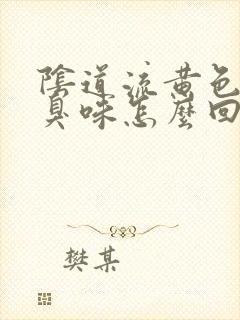 陰道流黃色
臭味怎麼回
樊某